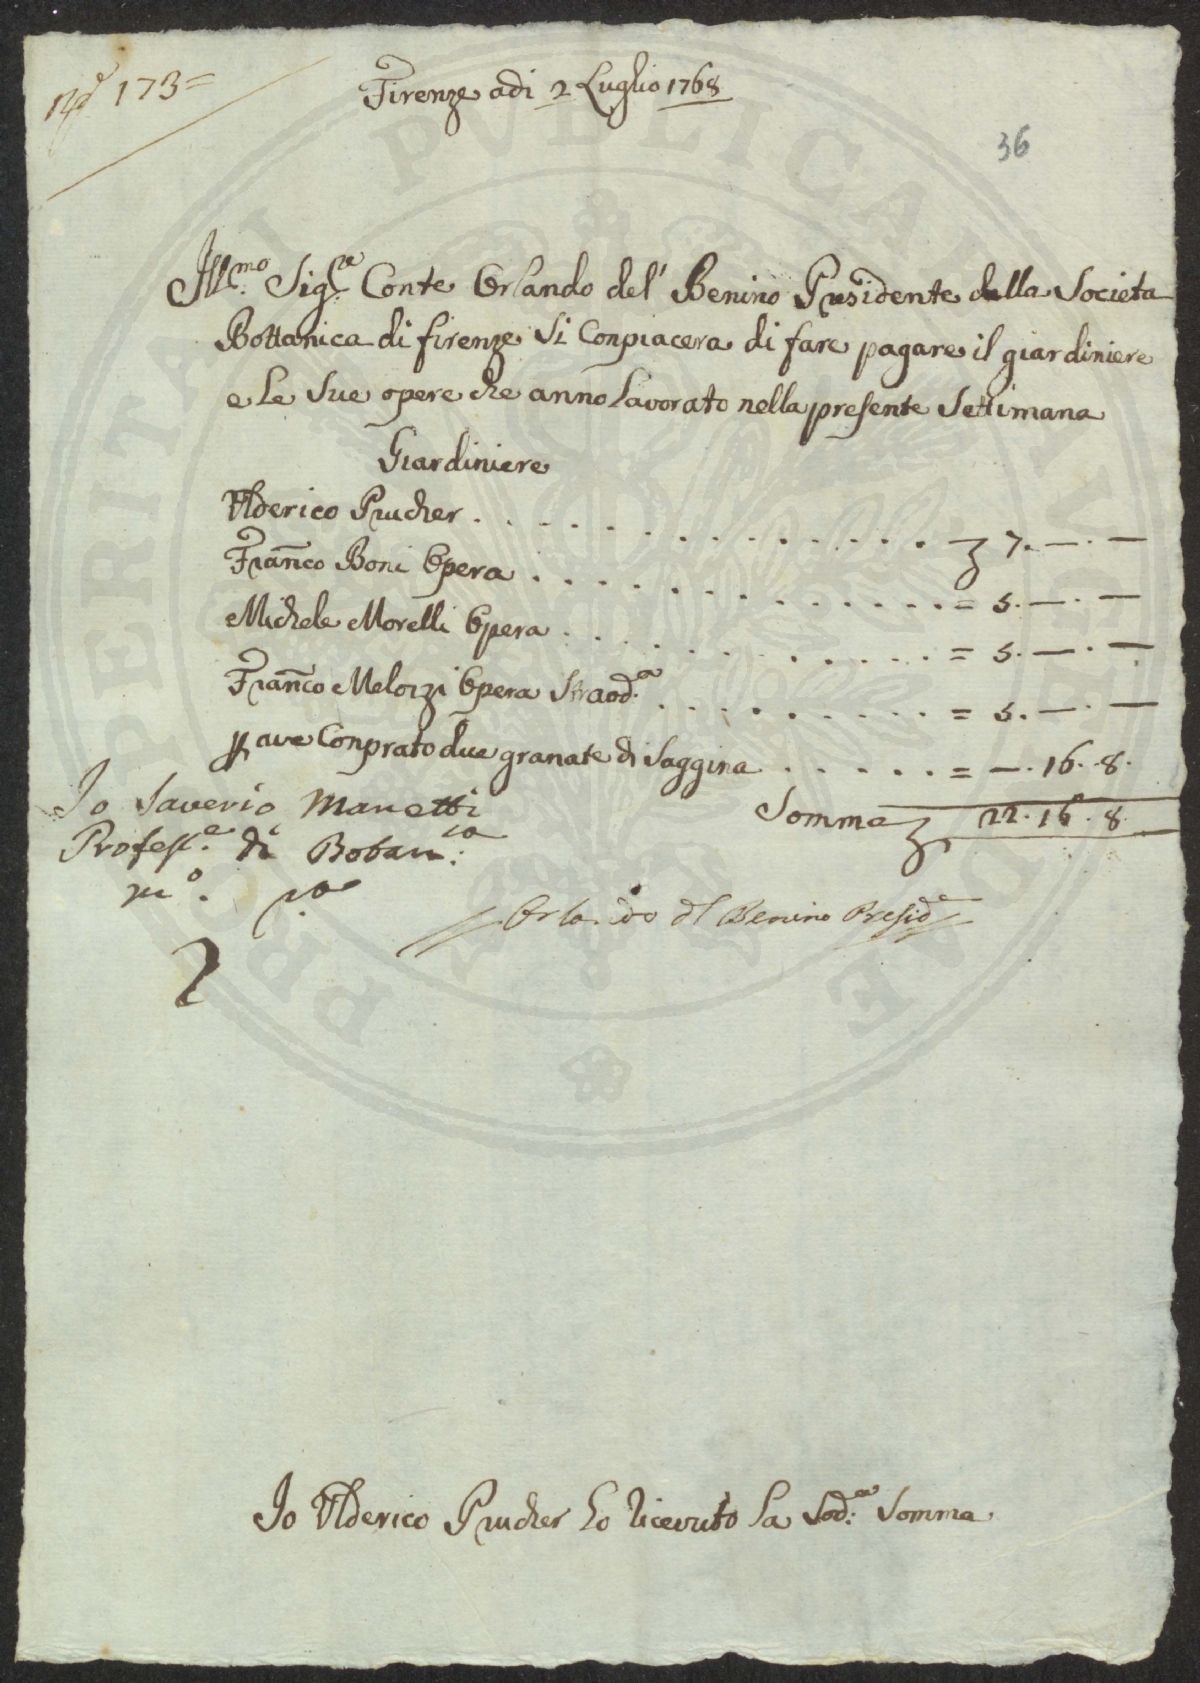 N.º 173=
Firenze adi 2 Luglio 1768
36
Ill.mo Sig.re Conte Orlando del' Benino Presidente della Societa
Bottanica di firenze Si Conpiacera di fare pagare il giardiniere
e Le Sue opere che anno Lavorato nella presente Settimana
Giardiniere
Ulderico Prucher . . . . . . . . . . . . . 7. —. —
Fran̄co Boni Opera . . . . . . . . . . . . = 5. —. —
Michele Morelli Opera . . . . . . . . . . . = 5. —. —
Fran̄co Meloizi Opera Straod.a . . . . . . . . = 5. —. —
p ave Conprato due granate di Saggina . . . . . = —. 16. 8.
Somma 22. 16. 8.
Io Saverio Manetti
Profess.e di Botan.ca
m.o p.a
Orlando del Benino Presid.e
Io Ulderico Prucher ho ricevuto La Sod.a Somma
PERITATI PVBLICAE